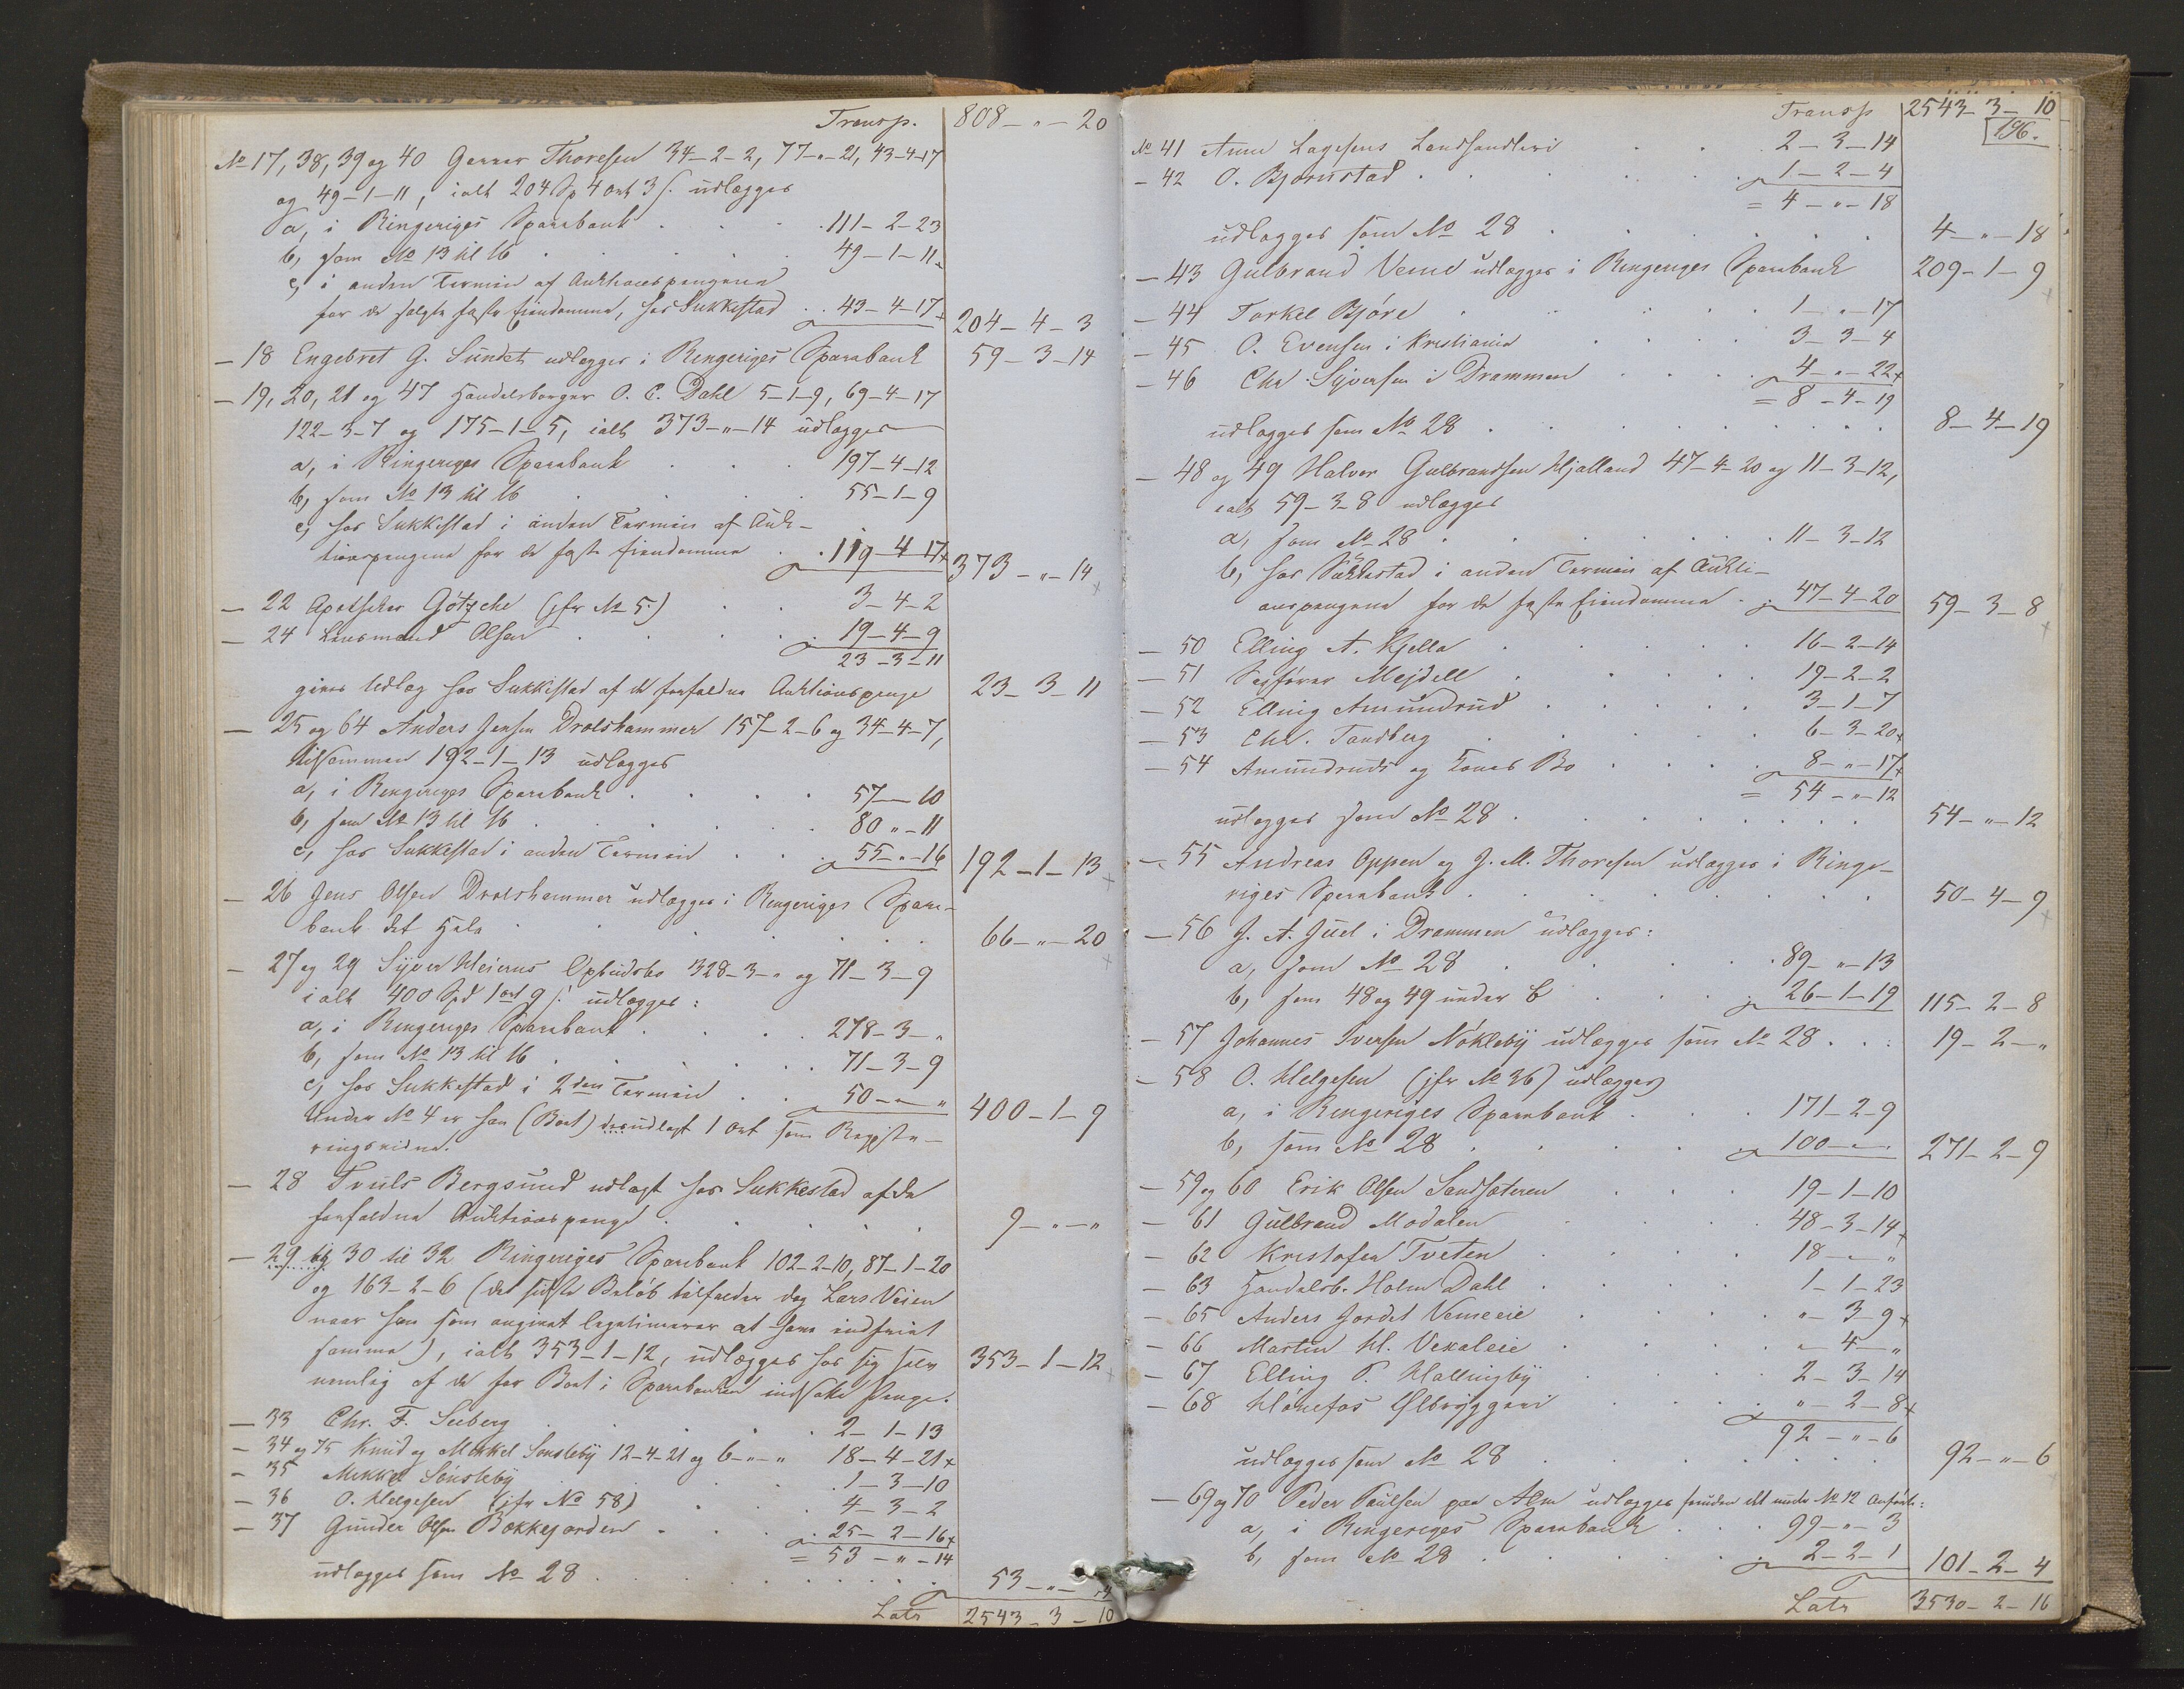 Transp. 808 - " - 20
No 17, 38, 39 og 40 Gunner Thoresen 34-2-2, 77-"-21, 43-4-17
og 49-1-11, ialt 204 Sp 4 ort 3 s. udlægges
a, i Ringeriges Sparebank . . 111-2-23
b, som No 13 til 16 . . . 49-1-11
c, i anden Termin af Auktionspengene
for de solgte faste Eiendomme, hos Sukkestad . . 43-4-17 204-4-3
- 18 Engebret G. Sundet udlægges i Ringeriges Sparebank 59-3-14
- 19, 20, 21 og 47 Handelsborger O. C. Dahl 5-1-9, 69-4-17
122-3-7 og 175-1-5, ialt 373-"-14 udlægges
a, i Ringeriges Sparebank . . 197-4-12
b, som No 13 til 16 . . . 55-1-9
c, hos Sukkestad i anden Termin af Auk-
tionspengene for de faste Eiendomme . . 119-4-17 373-"-14
- 22 Apotheker Götzche (jfr No 5.) . . 3-4-2
- 24 Lensmand Olsen . . . . 19-4-9
23-3-11
gives Udlæg hos Sukkestad af de forfaldne Auktionspenge 23-3-11
- 25 og 64 Anders Jensen Drolshammer 157-2-6 og 34-4-7,
tilsammen 192-1-13 udlægges
a, i Ringeriges Sparebank . . . . 57-"-10
b, som No 13 til 16 . . . . . 80-"-11
c, hos Sukkestad i anden Termin . . 55-"-16 192-1-13
- 26 Jens Olsen Drolshammer udlægges i Ringeriges Spare-
bank det Hele . . . . . 66-"-20
- 27 og 29 Syver Heierns Opbudsbo 328-3-" og 71-3-9
ialt 400 Spd 1 ort 9 s. udlægges:
a, i Ringeriges Sparebank . . . . 278-3-"
b, som No 13 til 16 . . . . . 71-3-9
c, hos Sukkestad i 2den Termin . . 50-"-" 400-1-9
Under No 4 er han (Boet) udlagt 1 ort som Registe-
ringsvidne.
- 28 Truls Bergsund udlagt hos Sukkestad af de
forfaldne Auktionspenge . . . . . 9-"-"
- 29 og 30 til 32 Ringeriges Sparebank 102-2-10, 87-1-20
og 163-2-6 (det sidste Beløb tilfalder dog Lars Veien
naar han som angivet legitimerer at have indfriet
samme), ialt 353-1-12, udlægges hos sig selv 353-1-12
nemlig af de for Boet i Sparebanken indsatte Penge.
- 33 Chr. F. Seeberg . . . . 2-1-13
- 34 og 75 Knud og Mikkel Sonsteby 12-4-21 og 6-"-" 18-4-21
- 35 Mikkel Sönsteby . . . . . 1-3-10
- 36 O. Helgesen (jfr No 58) . . . 4-3-2
- 37 Gunder Olsen Bakkejorden . . . . 25-2-16
= 53-"-14
udlægges som No 28 . . . . . . . 53-"-14
Lats 2543-3-10
Transp 2543-3-10
196.
No 41 Anne Lagesens Landhandleri . . . 2-3-14
- 42 O. Bjørnstad . . . . . . 1-2-4
= 4-"-18
udlægges som No 28 . . . . . . 4-"-18
- 43 Gulbrand Veme udlægges i Ringeriges Sparebank 209-1-9
- 44 Torkel Björe . . . . . . 1-"-17
- 45 O. Evensen i Kristiania . . . . 3-3-4
- 46 Chr. Syversen i Drammen . . . . 4-"-22
= 8-4-19
udlægges som No 28 . . . . . . . . 8-4-19
- 48 og 49 Halvor Gulbrandsen Hjalland 47-4-20 og 11-3-12,
ialt 59-3-8 udlægges
a, som No 28 . . . . . . . 11-3-12
b, hos Sukkestad i anden Termin af Aukti-
onspengene for de faste Eiendomme . . 47-4-20 59-3-8
- 50 Elling A. Kjella . . . . . 16-2-14
- 51 Sagfører Mejdell . . . . . 19-2-2
- 52 Elling Amundrud . . . . . 3-1-7
- 53 Chr. Tandberg . . . . . 6-3-20
- 54 Amundruds og Kones Bo . . . . 8-"-17
= 54-"-12
udlægges som No 28 . . . . . . . 54-"-12
- 55 Andreas Oppen og J. M. Thoresen udlægges i Ringe-
riges Sparebank . . . . . . . 50-4-9
- 56 J. A. Juel i Drammen udlægges:
a, som No 28 . . . . . 89-"-13
b, som 48 og 49 under b . . . 26-1-19 115-2-8
- 57 Johannes Iversen Nökleby udlægges som No 28 . . . 19-2-"
- 58 O. Helgesen (jfr No 36) udlægges
a, i Ringeriges Sparebank . . . 171-2-9
b, som No 28 . . . . . 100-"-" 271-2-9
- 59 og 60 Erik Olsen Sandsæteren . . . 19-1-10
- 61 Gulbrand Modalen . . . . 48-3-14
- 62 Kristofer Tveten . . . . 18-"-"
- 63 Handelsb. Holm Dahl . . . . . 1-1-23
- 65 Anders Jordet Vemeeie . . . . "-3-9
- 66 Martin H. Vekaleie . . . . . "-4-"
- 67 Elling P. Hallingby . . . . 2-3-14
- 68 Hönefos Ølbryggeri . . . . "-2-8
92-"-6
udlægges som No 28 . . . . . . . 92-"-6
- 69 og 70 Peder Paulsen paa Alm udlægges foruden det under No 12 Anførte:
a, i Ringeriges Sparebank . . . 99-"-3
b, som No 28 . . . . . . 2-2-1 101-2-4
Lats 3530-2-16